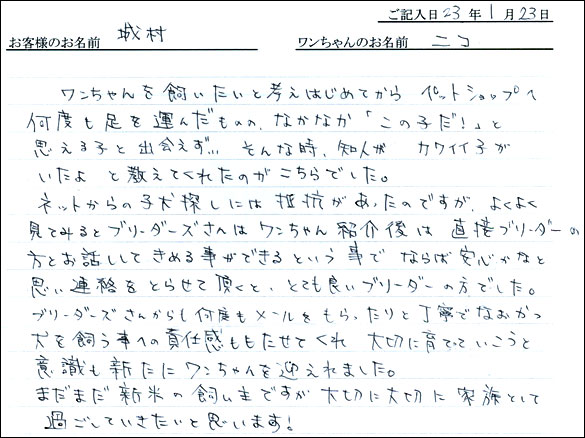 ご記入日 23 年 1 月 23 日
お客様のお名前 城村 ワンちゃんのお名前 ニコ
ワンちゃんを飼いたいと考えはじめてから ペットショップへ
何度も足を運んだものの、なかなか「この子だ!」と
思える子と出会えず… そんな時、知人が カワイイ子が
いたよ と教えてくれたのがこちらでした。
ネットからの子犬探しには 抵抗があったのですが、よくよく
見てみるとブリーダーズさんは ワンちゃん 紹介後は 直接ブリーダーの
方とお話しして きめる事ができる という 事で ならば 安心かなと
思い 連絡を とらせて 頂くと、とても良いブリーダーの方でした。
ブリーダーズさんからも何度もメールをもらったりと丁寧でなおかつ
犬を飼う事への責任感ももたせてくれ 大切に育てていこうと
意識も新たにワンちゃんを迎えれました。
まだまだ新米の飼い主ですが 大切に大切に 家族として
過ごしていきたいと思います!